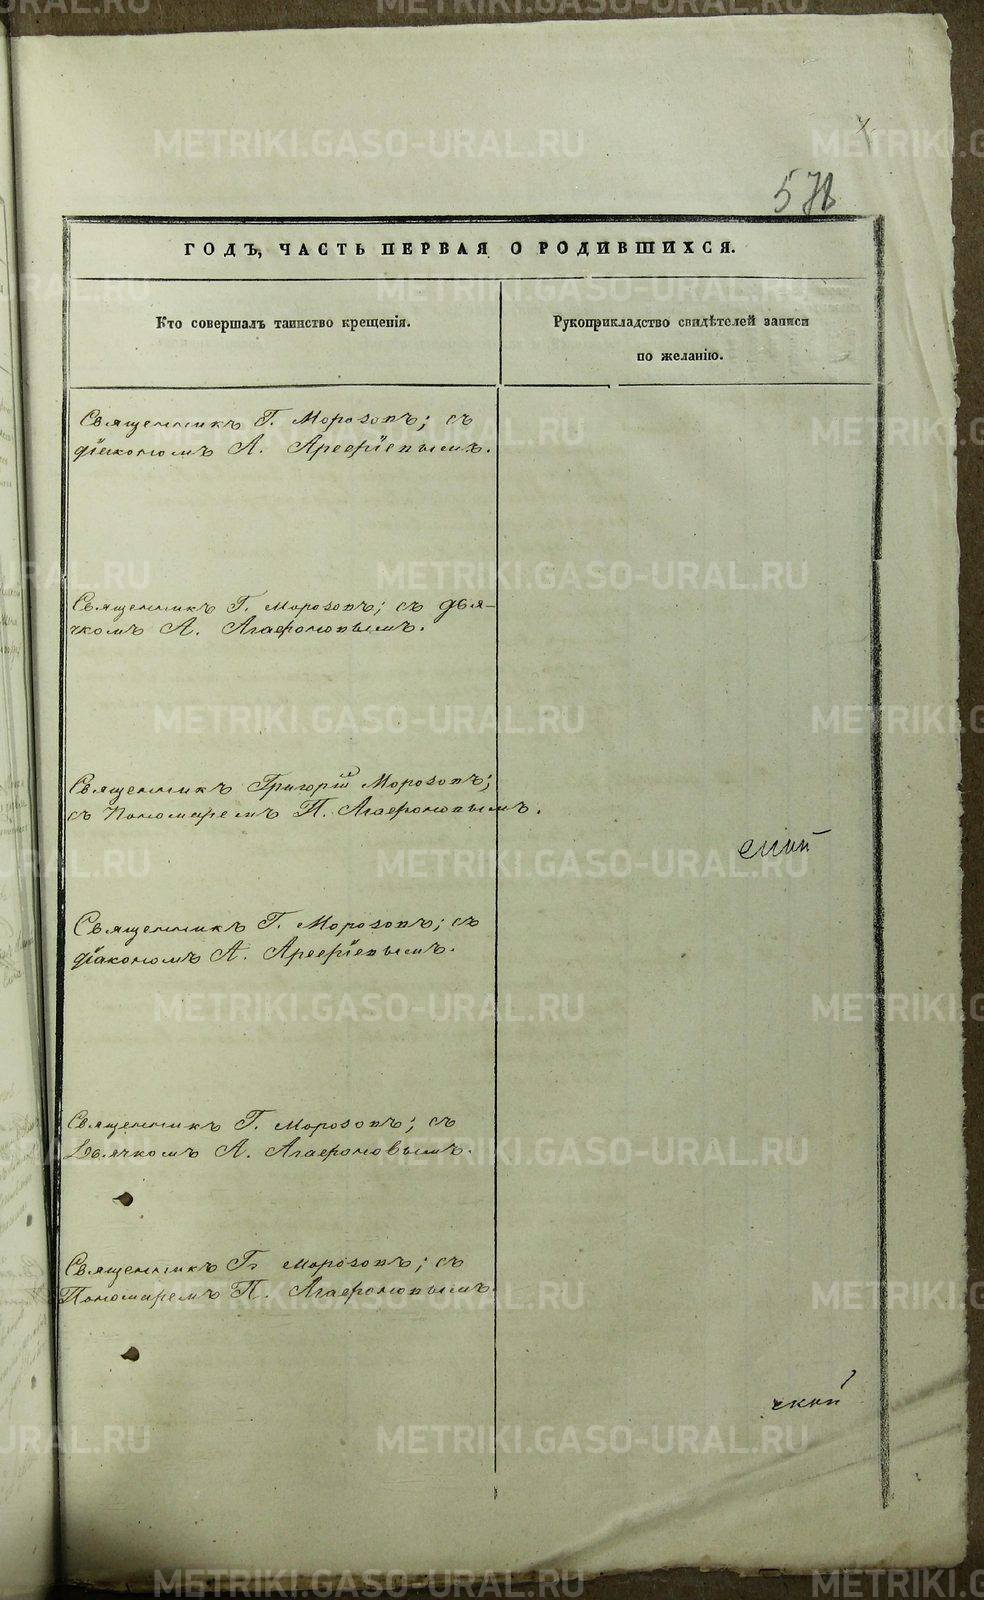 ГОДЪ, ЧАСТЬ ПЕРВАЯ О РОДИВШИХСЯ.
Кто совершалъ таинство крещенія.
Рукоприкладство свидѣтелей записи
по желанію.
Священникъ Г. Морозовъ; съ
діакономъ А. Арефіевымъ.
Священникъ Г. Морозовъ; съ дья-
чкомъ А. Агафоновымъ.
Священникъ Григорій Морозовъ;
съ Пономаремъ П. Агафоновымъ.
Священникъ Г. Морозовъ; съ
діакономъ А. Арефіевымъ.
Священникъ Г. Морозовъ; съ
Дьячкомъ А. Агафоновымъ.
Священникъ Г. Морозовъ; съ
Пономаремъ П. Агафоновымъ.
METRIKI.GASO-URAL.RU